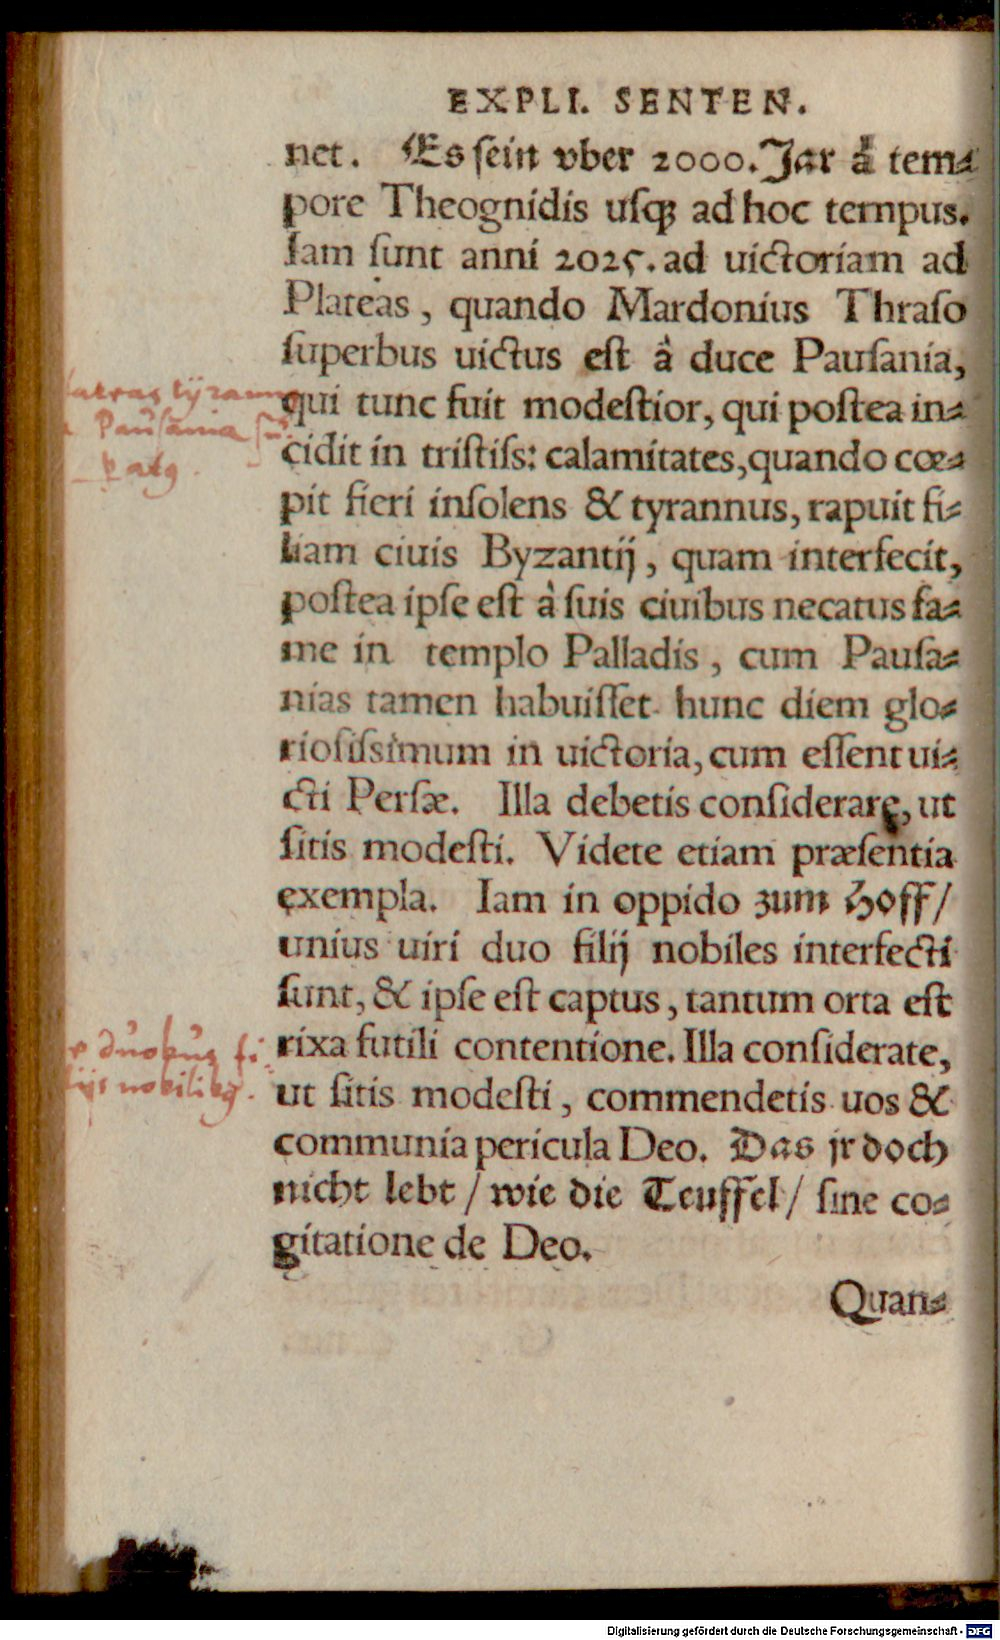 EXPLI. SENTEN.
net. Es sein vber 2000. Jar à tem⸗
pore Theognidis uſqꝫ ad hoc tempus.
Iam ſunt anni 2025. ad uictoriam ad
Plateas, quando Mardonius Thraſo
ſuperbus uictus eſt à duce Pauſania,
qui tunc fuit modeſtior, qui poſtea in⸗
cidit in triſtiſs: calamitates, quando cœ⸗
pit fieri inſolens & tyrannus, rapuit fi⸗
liam ciuis Byzantij, quam interfecit,
poſtea ipſe eſt à ſuis ciuibus necatus fa⸗
me in templo Palladis, cum Pauſa⸗
nias tamen habuiſſet hunc diem glo⸗
rioſiſsimum in uictoria, cum eſſent ui⸗
cti Perſæ. Illa debetis conſiderarę, ut
ſitis modeſti. Videte etiam præſentia
exempla. Iam in oppido zum Hoff/
unius uiri duo filij nobiles interfecti
ſunt, & ipſe eſt captus, tantum orta eſt
rixa futili contentione. Illa conſiderate,
ut ſitis modeſti, commendetis uos &
communia pericula Deo. Das jr doch
nicht lebt / wie die Teuffel / ſine co⸗
gitatione de Deo.
Quan⸗
tyrannus
Pauſania
duobus fi
lijs nobilibꝰ.
Digitalisierung gefördert durch die Deutsche Forschungsgemeinschaft - DFG